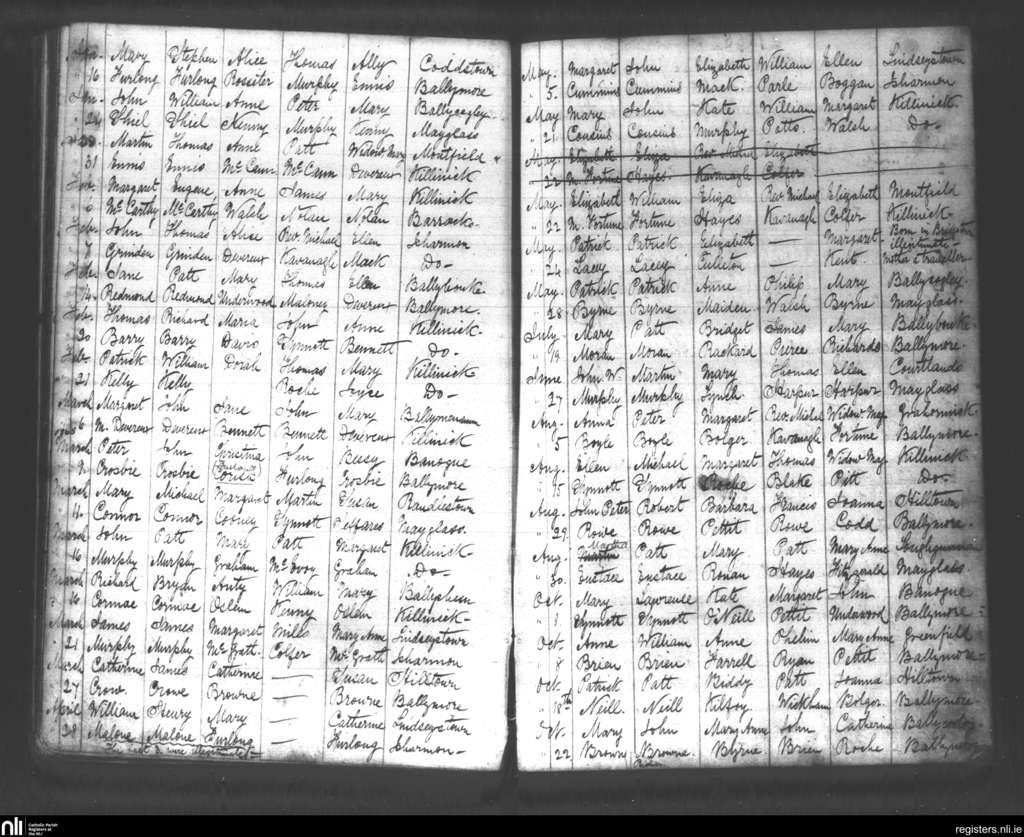 Jan. Mary Stephen Alice Thomas Ally Coddstown
" 16 Furlong Furlong Rossiter Murphy Ennis Ballymore
Jan. John William Anne Peter Mary Ballycogley
" 24 Sheil Sheil Kenny Murphy Kenny Mayglass
Martin Thomas Anne Patt Widow Mary Montfield
31 Ennis Ennis McCann McCann Devereux Killinick
Feb. Margaret Eugene Anne James Mary Killinick
McCarthy McCarthy Walsh Nolan Nolan Barracks.
Feb. John Thomas Alice Rev Michael Ellen Isharmon
7 Grinden Grinden Devereux Kavanagh Mack Do-
Feb. Jane Patt Mary Thomas Ellen
14. Redmond Redmond Underwood Maloney Devereux Ballymore.
Feb. Thomas Richard Maria John Anne Killinick-
20 Barry Barry Davis Synnott Bennett Do-
Feb. Patrick William Dorah Thomas Mary Killinick
21 Kelly Kelly Roche Joyce Do-
March Margaret John Jane John Mary
6 M. Devereux Devereux Bennett Bennett Devereux Killinick
March Peter John Christina John Bessy Banogue
11 Crosbie Crosbie Furlong Crosbie Ballymore
March Mary Michael Margaret Martin Susan Randlestown
Connor Connor Cooney Synnott Mayglass.
March John Patt Mary Patt Margaret Killinick
16 Murphy Murphy Graham McEvoy Graham Do-
March Richard Bryan Anty William Mary Ballyshem
16 Cormac Cormac Kenny Killinick-
March James James Margaret Miles Mary Anne Lindseystown
21 Murphy Murphy McGrath. Colfer McGrath Isharmon
March Catherine James Catherine — Susan Hilltown
27 Crow. Crowe Browne — Browne Ballymore
April William Henry Mary — Catherine Lindseystown
28 Malone Malone Furlong — Furlong Isharmon-
May. Margaret John Elizabeth William Ellen Lindseystown
" 5. Cummins Cummins Mack. Parle Boggan Isharmon
May Mary John Kate William Margaret Killinick.
" 21 Cousins Cousins Murphy Potts. Walsh Do-
May Elizabeth Eliza Rev Michl Elizabeth
22 M. Fortune Hayes Kavanagh Colfer
May. Elizabeth William Eliza Rev Michael Elizabeth Montfield
" 22 M. Fortune Fortune Hayes Kavanagh Colfer Killinick-
May. Patrick Patrick Elizabeth — Margaret Born in
24 Lacey Lacey — Kent. illegitimate-
May. Patrick Patrick Anne Philip Mary Ballycogley
" 28 Byrne Byrne Maiden Walsh Byrne Mayglass.
July Mary Patt Bridget James Mary
" 19 Moran Moran Rackard Pierce Richards Ballymore-
June John W. Martin Mary Thomas Ellen Courtlands
" 27 Murphy Murphy Lynch. Harpur Harpur Mayglass
Aug. Anna Peter Margaret Rev Michl Widow Mag Grahormick
" 5 Boyle Boyle Bolger Kavanagh Fortune Ballymore-
Aug. Ellen Michael Margaret Thomas Widow Mag Killinick
" 15 Synnott Synnott Roche Blake Pitt Do-
Aug. John Peter Robert Barbara Francis Joanna Hilltown
" 29. Rowe Rowe Pettit Rowe Codd Ballymore.
Aug. Martha Patt Mary Patt Mary Anne
" 30. Eustace Eustace Ronan Hayes Fitzgerald Mayglass.
Oct. Mary Lawrence Kate Margaret John Banogue
" 1. Synnott Synnott O'Neill Pettit Underwood Ballymore
Oct. Anne William Anne Phelim Mary Anne Greenfield
" 8 Brien Brien Farrell Ryan Pettit Ballymore-
Oct. Patrick Patt Biddy Patt Joanna Hilltown
" 18th Neill. Neill Kilfoy Wickham Bolger. Ballymore
Oct. Mary John Mary Anne John Catherine
" 22 Brown Browne. Byrne Brien Roche
nli Catholic Parish Registers at the NLI
registers.nli.ie